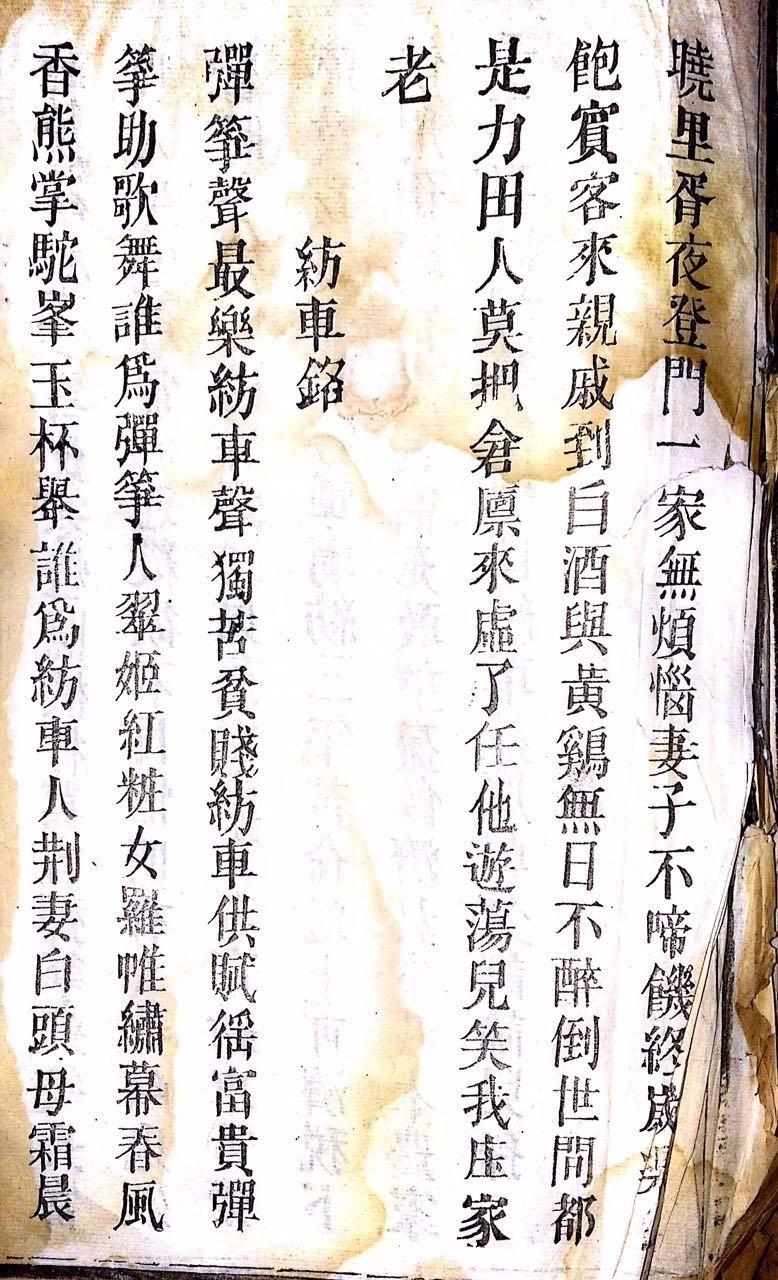 曉里胥夜登門一家無煩惱妻子不啼饑終歲
飽賓客來親戚到白酒與黃鷄無日不醉倒世間都
是力田人莫把倉廪來虛了任他遊蕩兒笑我庄家
老
紡車銘
彈箏聲最樂紡車聲獨苦貧賤紡車供賦徭富貴彈
箏助歌舞誰爲彈箏人翠姬紅粧女羅帷繡幕春風
香熊掌駝峯玉杯舉誰爲紡車人荆妻白頭母霜晨